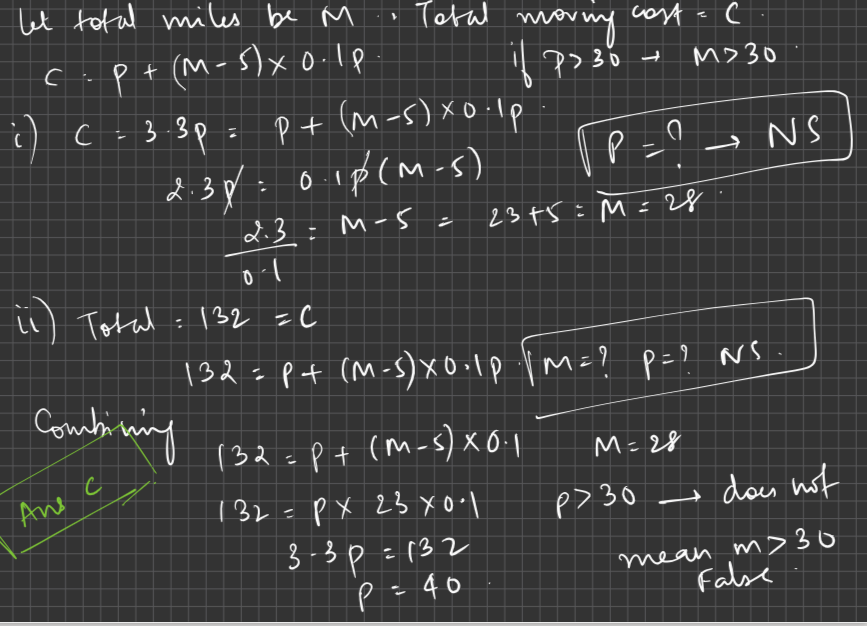 let total miles be M . Total moving cost = C
C = P + (M - 5) × 0.1p. if P > 30 → M > 30
i) C = 3.3p = P + (M-5) × 0.1p.
P = ? → NS
2.3p = 0.1p(M-5)
2.3/0.1 = M - 5 = 23 + 5 = M = 28.
ii) Total = 132 = C
132 = P + (M-5) × 0.1p M = ? P = ? NS.
Combining
132 = P + (M-5) × 0.1 M = 28
Ans C
132 = P × 23 × 0.1 P > 30 → does not
3.3p = 132 mean m > 30
P = 40. False.